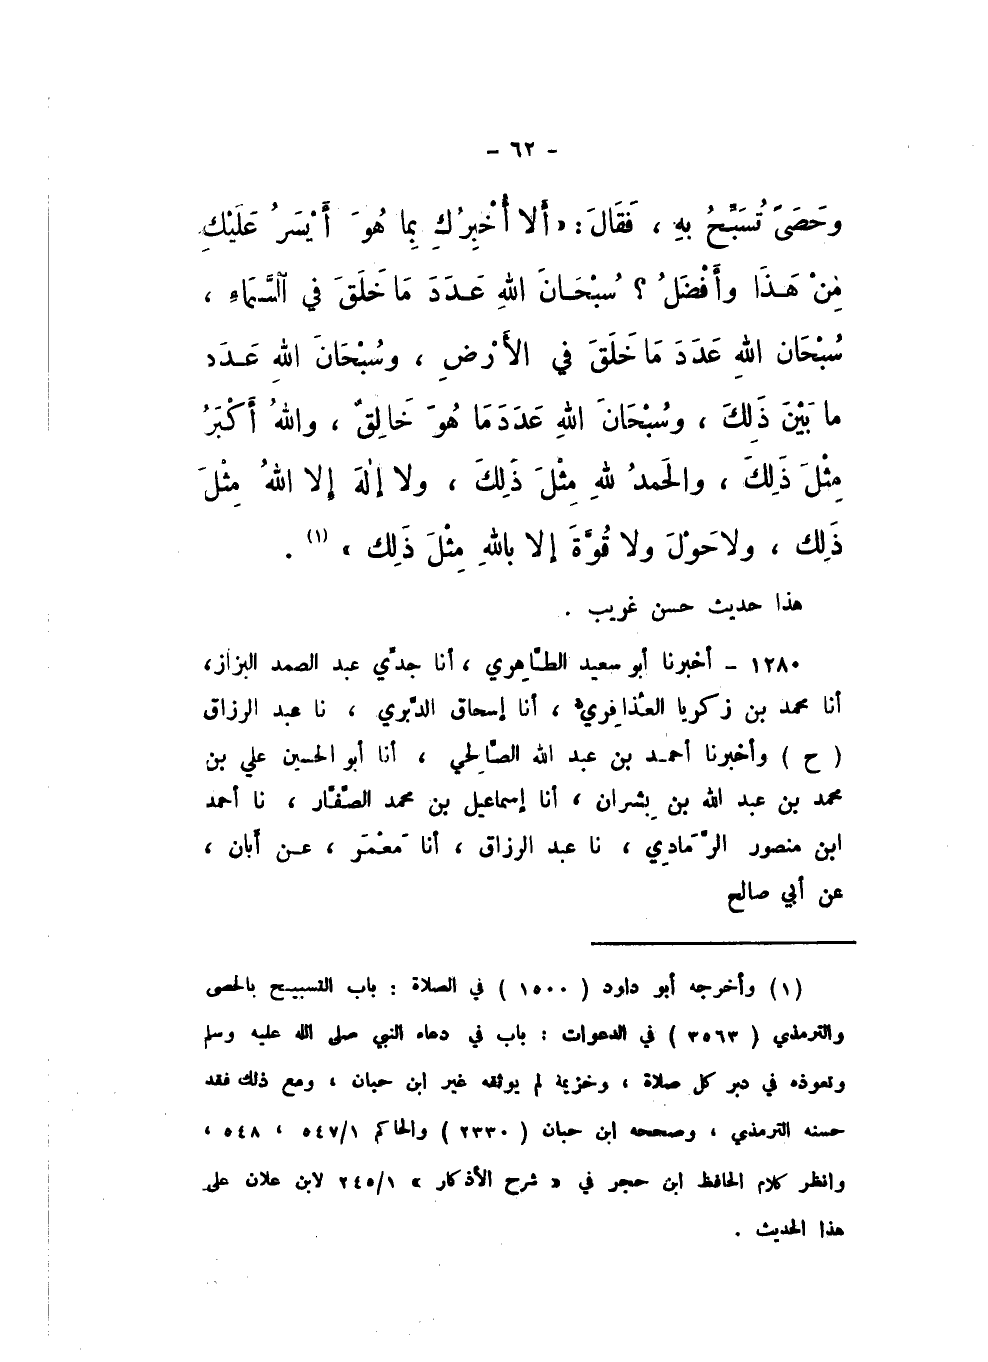 - ٦٢ -
وحَصَىً تُسَبِّحُ بِهِ ، فَقَالَ : « أَلا أُخْبِرُكِ بِما هُوَ أَيْسَرُ عَلَيْكِ
مِنْ هَـذَا وأَفْضَلُ ؟ سُبْحَـانَ اللهِ عَـدَدَ مَا خَلَقَ في السَّمَاءِ ،
سُبْحَان اللهِ عَدَدَ مَا خَلَقَ في الأَرْضِ ، وسُبْحَانَ اللهِ عَـدَد
ما بَيْنَ ذَلِكَ ، وسُبْحَانَ اللهِ عَدَدَ مَا هُوَ خَالِقٌ ، واللهُ أَكْبَرُ
مِثْلَ ذَلِكَ ، والحَمدُ للهِ مِثْلَ ذَلِكَ ، ولا إلَهَ إلا اللهُ مِثْلَ
ذَلِك ، ولا حَوْلَ ولا قُوَّةَ إلا باللهِ مِثْلَ ذَلِك » (١) .
هذا حديث حسن غريب .
١٢٨٠ - أخبرنا أبو سعيد الطَّاهِري ، أنا جدّي عبد الصمد البزاز،
أنا محمد بن زكريا العُذافِري ، أنا إسحاق الدَّبري ، نا عبد الرزاق
( ح ) وأخبرنا أحمـد بن عبد الله الصَّالِحي ، أنا أبو الحسين علي بن
محمد بن عبد الله بن بِشران ، أنا إسماعيل بن محمد الصَّفَّار ، نا أحمد
ابن منصور الرَّمَادِي ، نا عبد الرزاق ، أنا مَعْمَر ، عـن أَبان ،
عن أبي صالح
(١) وأخرجه أبو داود ( ١٥٠٠ ) في الصلاة : باب التسبيـح بالحصى
والترمذي ( ٣٥٦٣ ) في الدعوات : باب في دعاء النبي صلى الله عليه وسلم
وتعوذه في دبر كل صلاة ، وخزيمة لم يوثقه غير ابن حبان ، ومع ذلك فقد
حسنه الترمذي ، وصححه ابن حبان ( ٢٣٣٠ ) والحاكم ٥٤٧/١ ، ٥٤٨ ،
وانظر كلام الحافظ ابن حجر في « شرح الأذكار » ٢٤٥/١ لابن علان على
هذا الحديث .